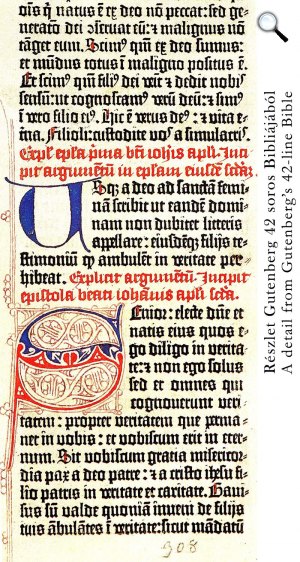 oīs q̄ natus ē ex deo nō peccat: sed ge-
neratio dei ꝯservat eū: ⁊ malignus nō
tāget eum. Scimꝰ qm̄ ex deo sumus:
et mūdus totus ī maligno positus ē.
Et scimꝰ qm̄ filiꝰ dei
sensū: ut cognoscamꝰ verū deū: ⁊ simꝰ
ī vero filio eiꝰ. Hic ē verus deꝰ: ⁊ vita
Filioli: custodite vos a simulacris.
Expl' epl'a p̄ma bt̄i ioh̄is apl'i. Inci-
pit argumētū in epl'am eiusdē scd̄a.
Usq; a deo ad sanctā femi-
nā scribit ut eandē domi-
nam non dubitet litteris
appellare: eiusdēq; filijs te-
stimoniū qꝫ ambulēt in veritate per-
hibeat. Explicit argumētū. Incipit
epistola beati iohānis apl'i scd̄a.
Senior: electe dn̄e et
natis eius quos e-
go diligo in verita-
te: ⁊ non ego solus
sed et omnes qui
cognoverunt veri-
tatem: propter veritatem que prema-
net in vobis: et vobiscum erit in eter-
num. Sit vobiscum gratia misericor-
dia pax a deo patre: ⁊ a cristo ihesu fi-
lio patris in veritate et caritate. Gavi-
sus sū valde quoniā inveni de filijs
tuis ābulātes ī veritate: sicut mādatū
908
Részlet Gutenberg 42 soros Bibliájából
A detail from Gutenberg's 42-line Bible